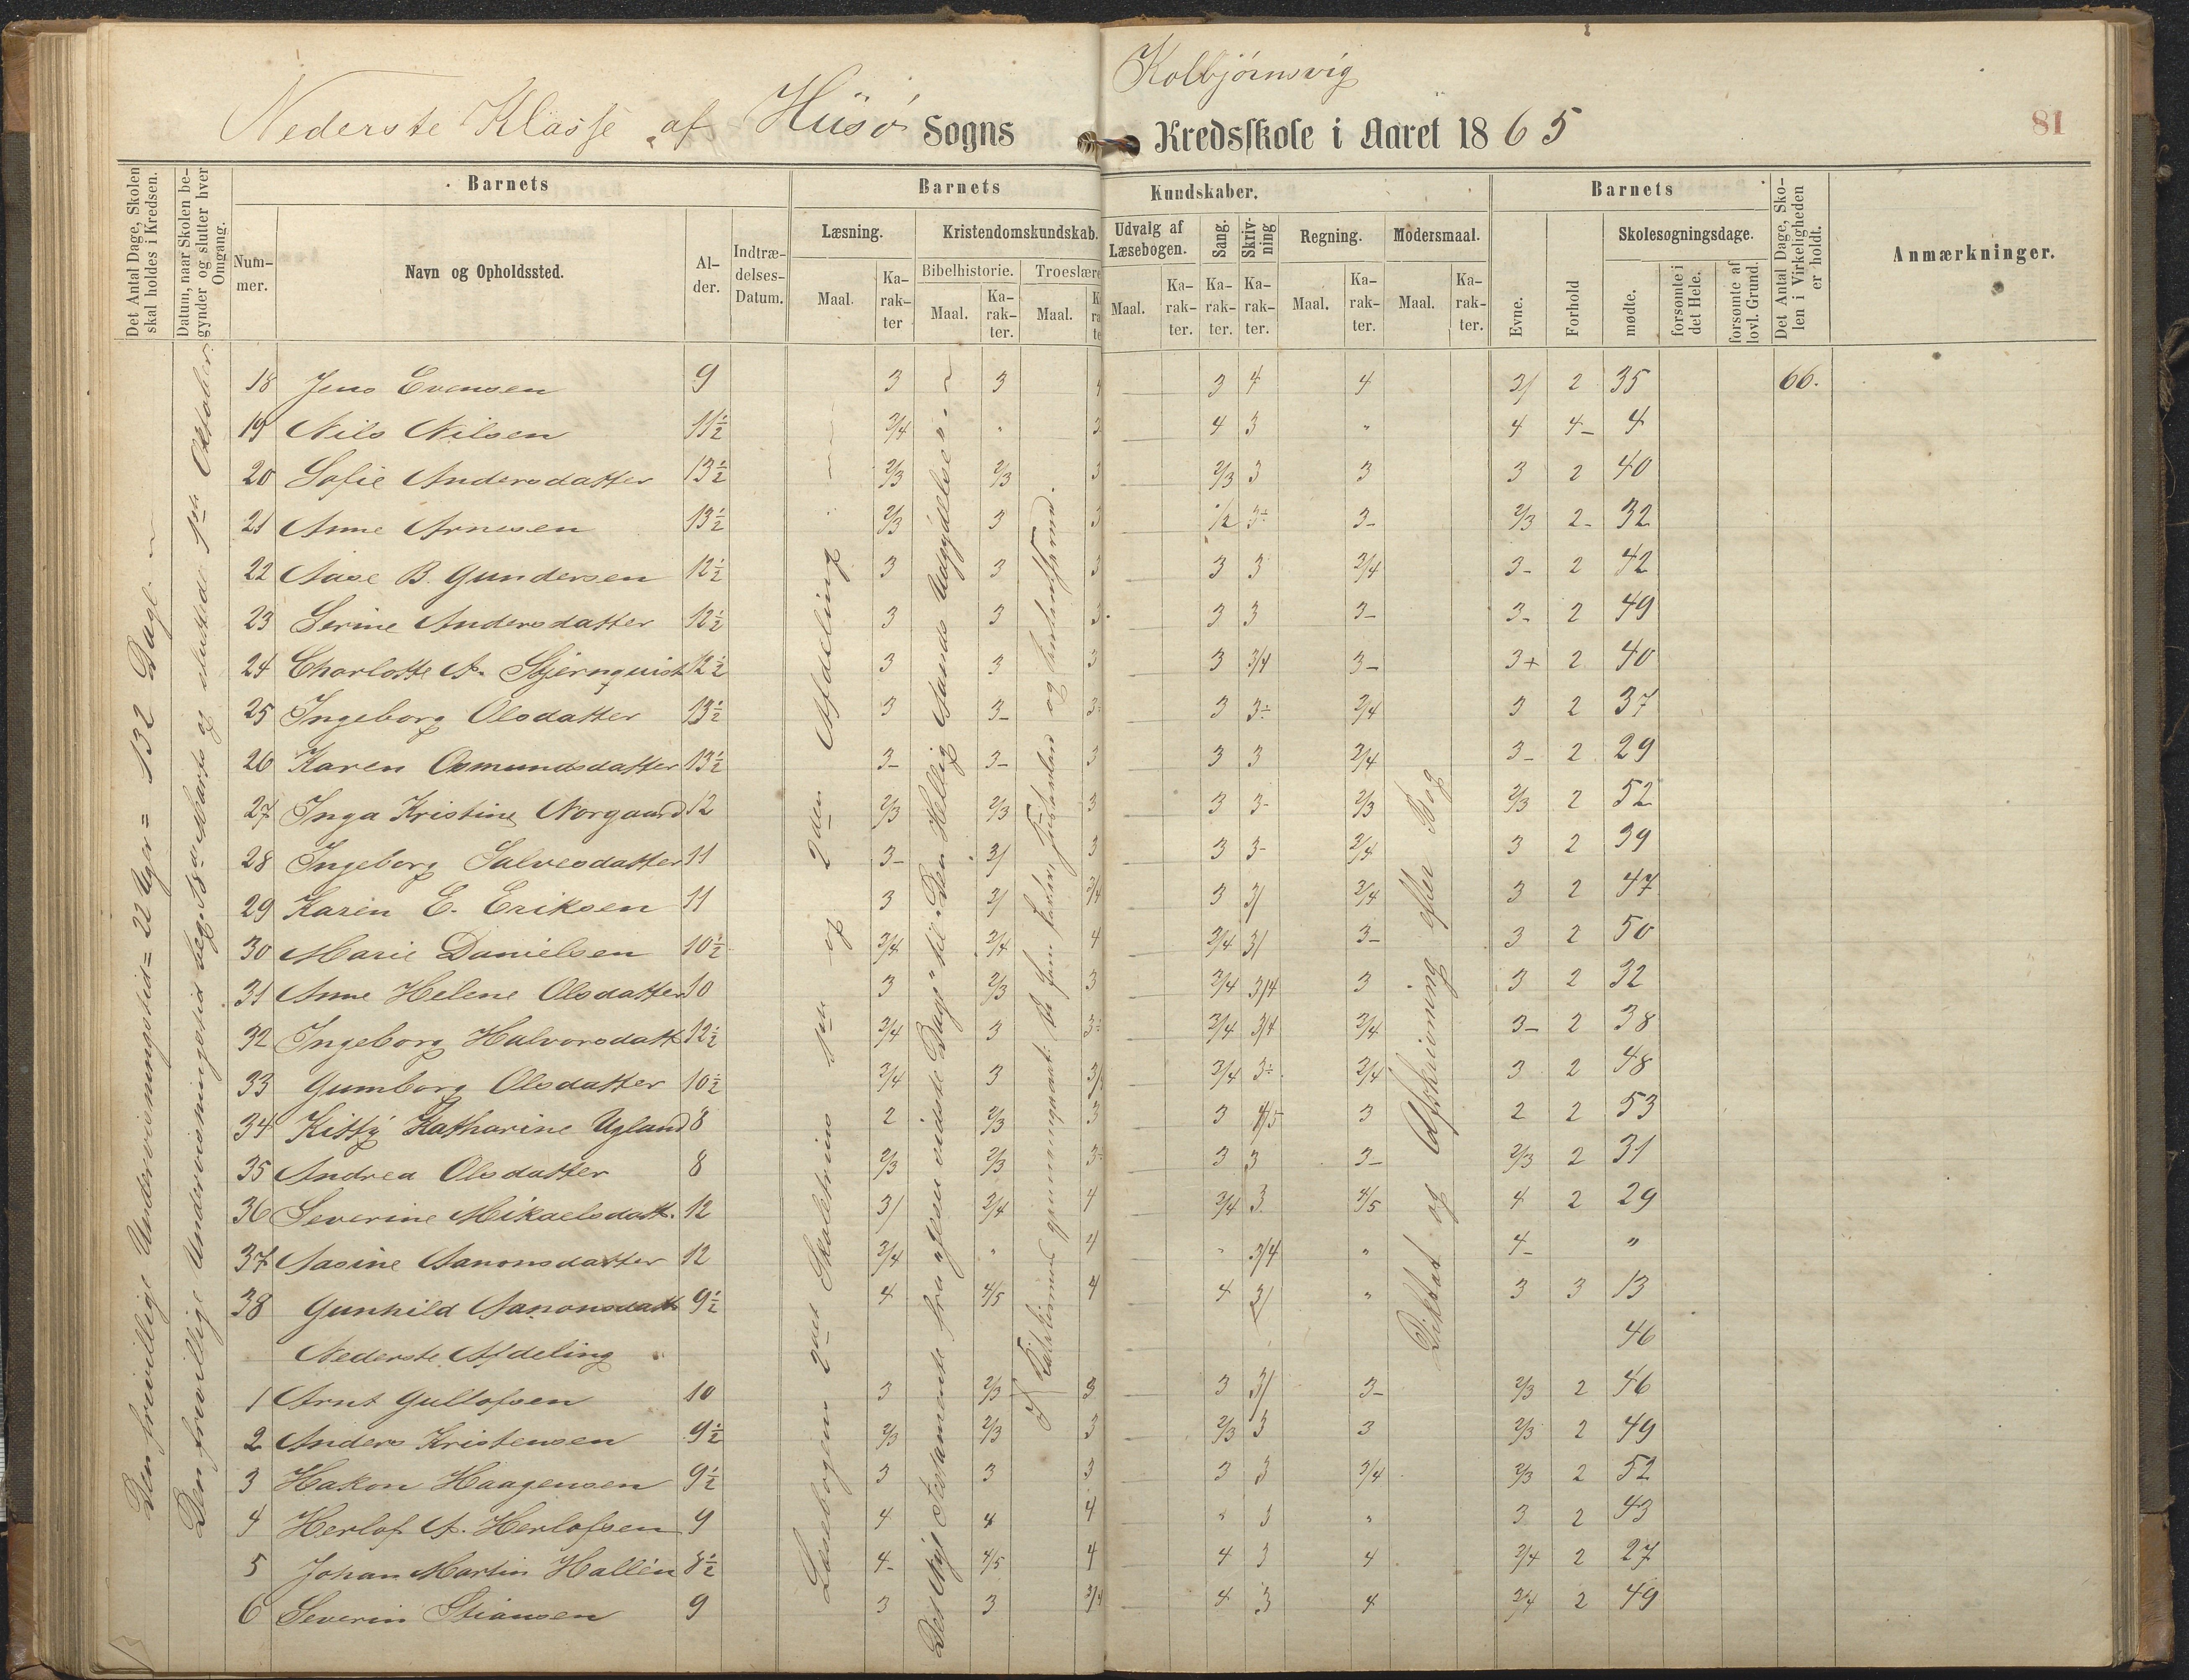 Kolbjörnsvig
Nederste Klasse af Hüsö Sogns Kredsskole i Aaret 1865
81
Det Antal Dage, Skolen skal holdes i Kredsen.
Datum, naar Skolen begynder og slutter hver Omgang.
Barnets
Nummer.
Navn og Opholdssted.
Alder.
Indtrædelses-Datum.
Barnets Kundskaber.
Læsning.
Maal. Karakter
Kristendomskundskab.
Bibelhistorie. Troeslære
Maal. Karakter. Maal.
Udvalg af Læsebogen.
Maal. Karakter.
Sang. Karakter.
Skrivning Karakter.
Regning.
Maal. Karakter.
Modersmaal.
Maal. Karakter.
Barnets
Evne.
Forhold
Skolesogningsdage.
mødte.
forsømte i det Hele.
forsømte af lovl. Grund.
Det Antal Dage, Skolen i Virkeligheden er holdt.
Anmærkninger.
Den frivillige Undervisningstid = 22 Uger = 132 Dage
Den frivillige Undervisningstid beg. 18de Marts og sluttede 1ste Oktober.
Læsebogens 2det Skoletrins 1ste og 2den Afdeling
Det Nye Testamente fra "Jesu sidste Dage" til "Den Hellig Aands Udgydelse"
Diktat og Afskrivning efter Bog
18 Jens Evensen 9 3 3 3 4 4 3/ 2 35 66.
19 Nils Nilsen 11½ 3/4 " 4 3 " 4 4- 4
20 Sofie Andersdatter 13½ 2/3 2/3 3 2/3 3 3 3 2 40
21 Anne Arnesen 13½ 2/3 3 3 ½ 3÷ 3- 2/3 2- 32
22 Aase B. Gundersen 12½ 3 3 3 3 3 3/4 3- 2 42
23 Serine Andersdatter 12½ 3 3 3 3 3 3- 3- 2 49
24 Charlotte A. Stjernquist 12½ 3 3 3 3 3/4 3- 3+ 2 40
25 Ingeborg Olsdatter 13½ 3 3- 3÷ 3 3÷ 3/4 3 2 37
26 Karen Osmundsdatter 13½ 3- 3- 3 3 3 3/4 3- 2 29
27 Inga Kristine Norgaard 12 2/3 2/3 3 3 3- 2/3 2/3 2 52
28 Ingeborg Salvesdatter 11 3- 3/ 3 3 3- 3/4 3 2 39
29 Karen E. Eriksen 11 3 3/ 3/4 3 3/ 3/4 3 2 47
30 Marie Danielsen 10½ 3/4 3/4 4 3/4 3/ 3- 3 2 50
31 Anne Helene Olsdatter 10 3 2/3 3 3/4 3/4 3 3 2 32
32 Ingeborg Halvorsdatt 12½ 3/4 3 3÷ 3/4 3/4 3/4 3- 2 38
33 Gumborg Olsdatter 10½ 3/4 3 3/ 3/4 3÷ 3/4 3 2 48
34 Kitty Katharine Ugland 8 2 2/3 3 3 4/5 3 2 2 53
35 Andrea Olsdatter 8 2/3 2/3 3÷ 3 3 3- 2/3 2 31
36 Severine Mikaelsdatt. 12 3/ 3/4 4 3/4 3 4/5 4 2 29
37 Aasine Aanonsdatter 12 3/4 " 4 " 3/4 " 4- "
38 Gunhild Aanonsdatt 9½ 4 4/5 4 4 3/ " 3 3 13
46
Nederste Afdeling
1 Arnt Gullofsen 10 3 2/3 3 3 3/ 3- 2/3 2 46
2 Anders Kristensen 9½ 2/3 2/3 3 2/3 3 3 2/3 2 49
3 Hakon Haagensen 9½ 3 3 3 3 3 3/4 2/3 2 52
4 Herlof A. Herlofsen 9 4 4 4 " 3 " 3 2 43
5 Johan Martin Hallén 8½ 4- 4/5 4 4 3 4 3/4 2 27
6 Severin Stiansen 9 3 3 3/4 4 3 4 3/4 2 49